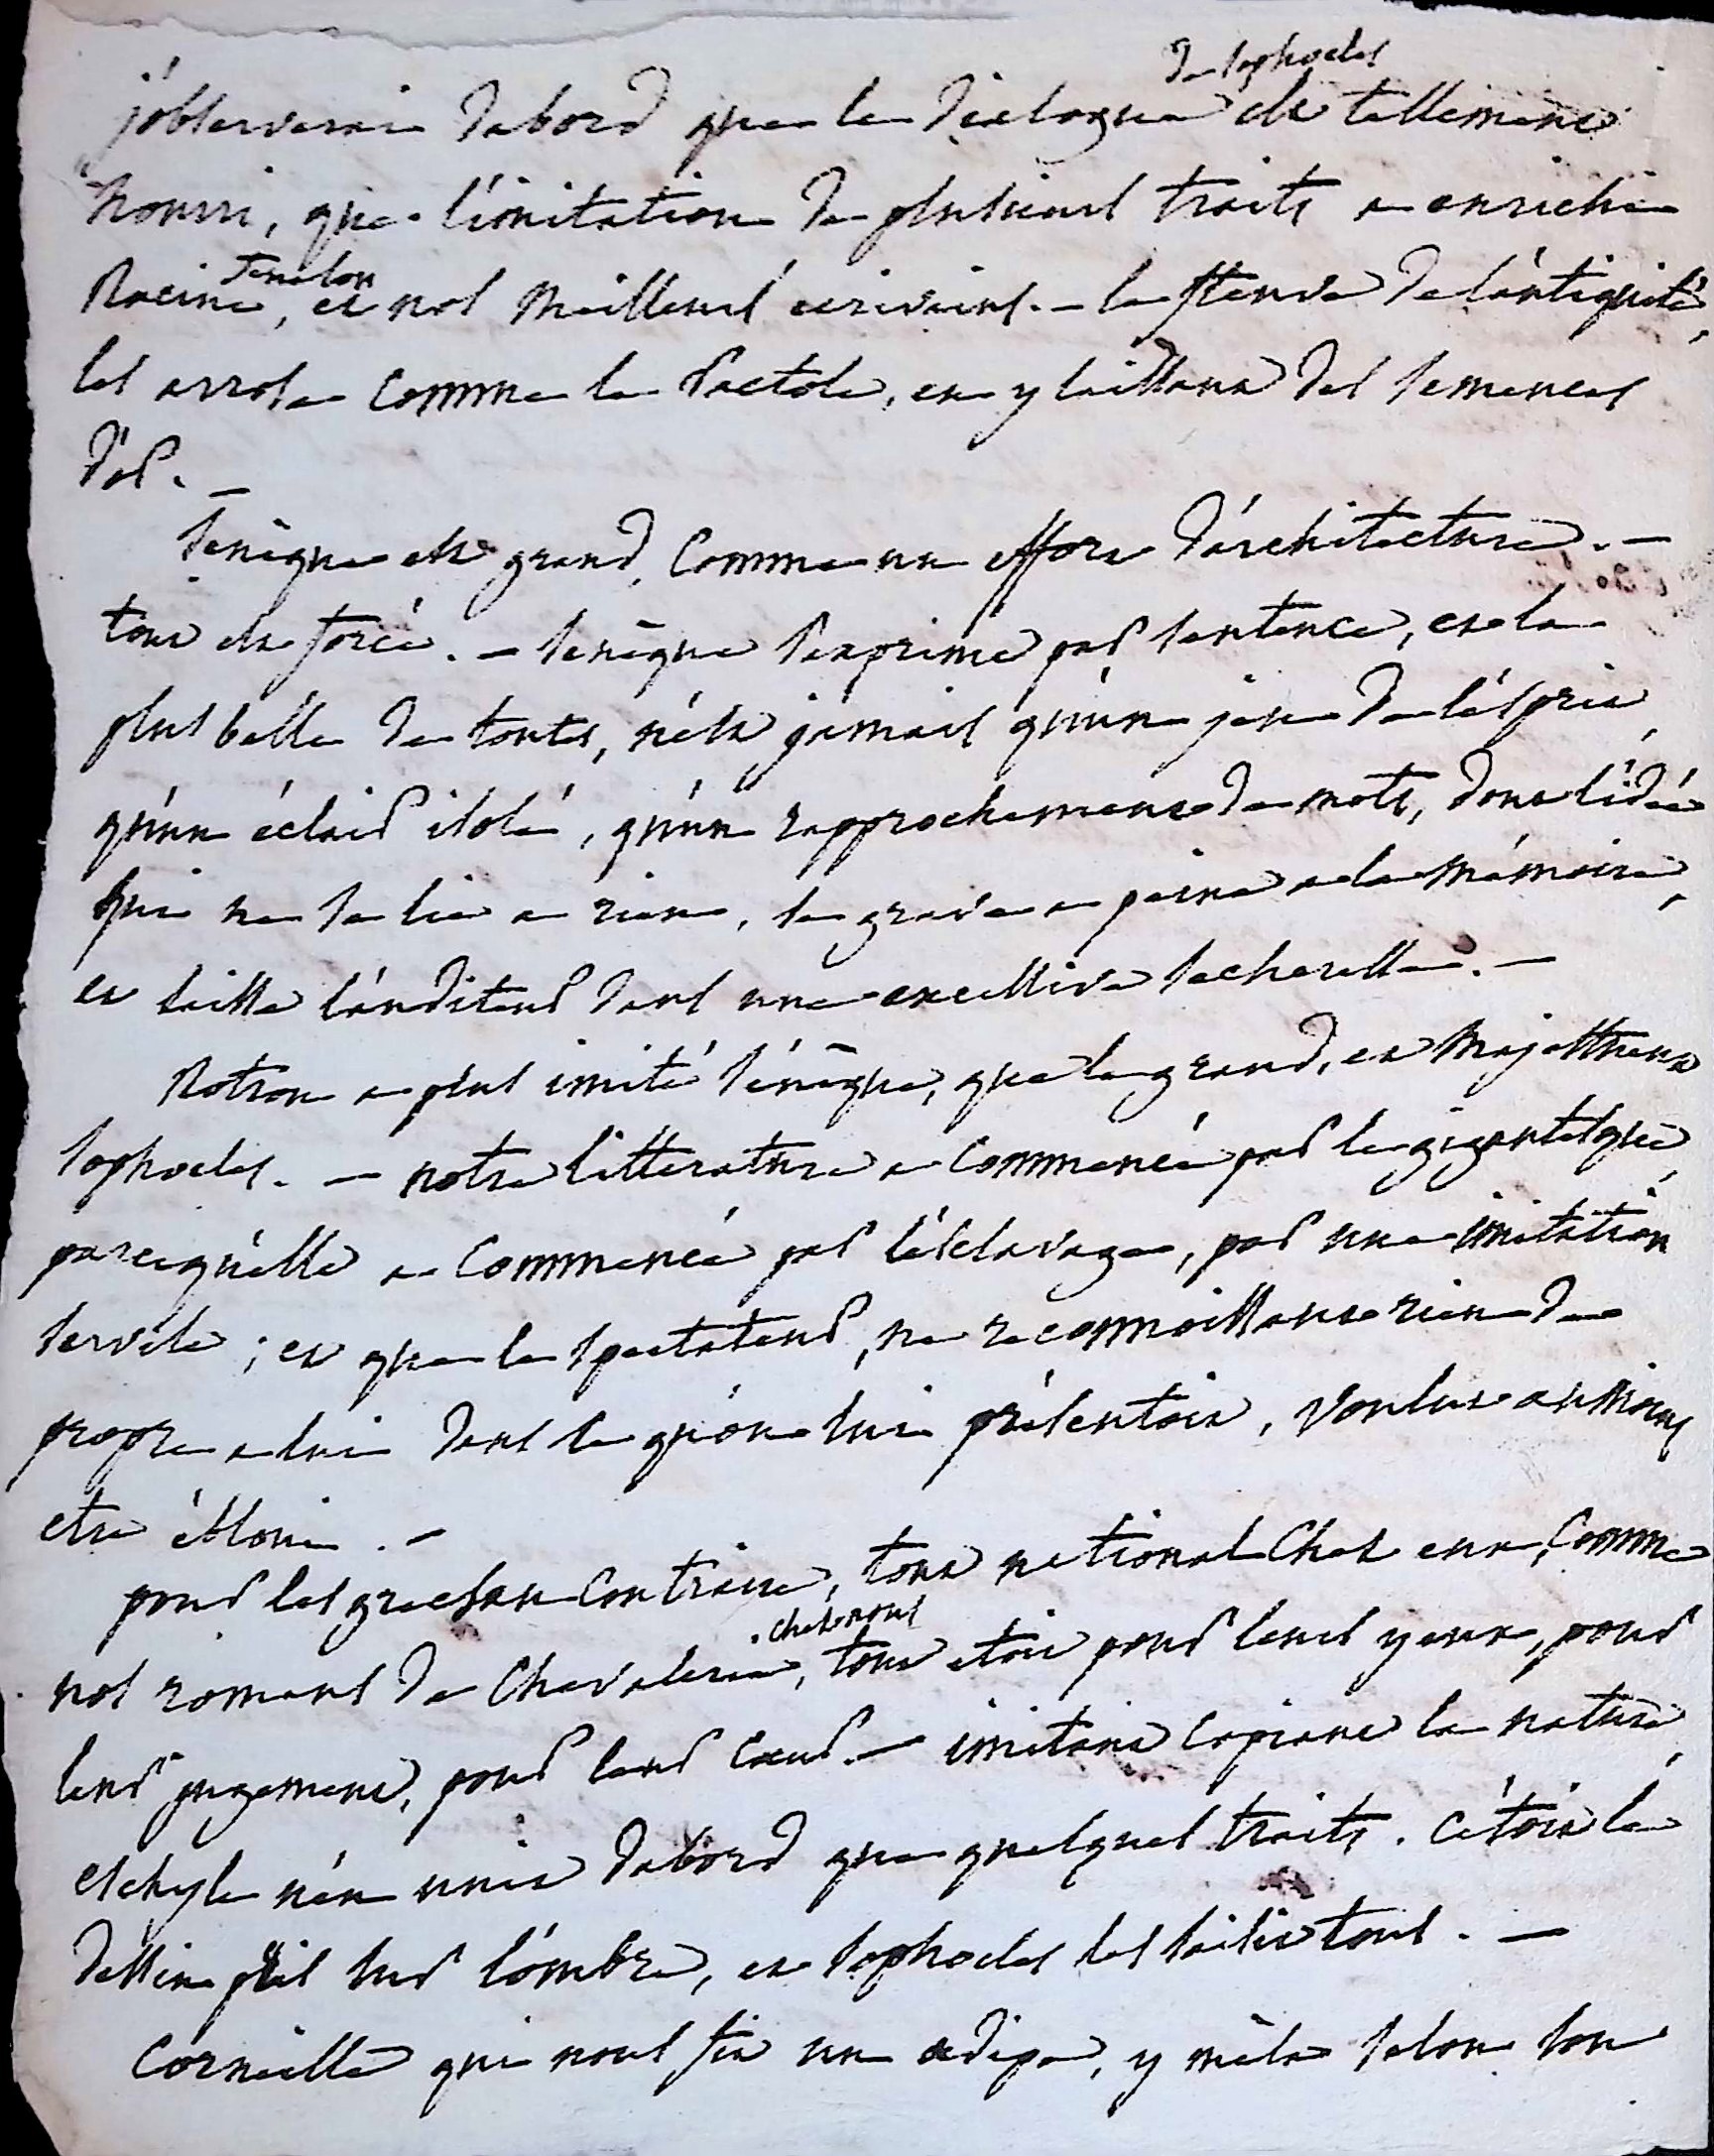 de sophocles
j'observerai dabord que le dialogue est tellement
nourri, que l'imitation de plusieurs traits a enrichi
fenelon
Racine, et nos meilleurs ecrivains. – le fleuve de l'antiquité,
les arrose comme le Pactole, en y laissant des semences
d'or. –
Senèque est grand, comme un effort d'architecture. –
tout est forcé. – Senèque s'exprime par sentence, et la
plus belle de toutes, n'est jamais qu'un jeu de l'esprit,
qu'un éclair isolé, qu'un rapprochement de mots, dont l'idée
qui ne se lie a rien, se grave a peine a la mémoire,
et laisse l'auditeur dans une excessive secheresse. –
Rotrou a plus imité Sénèque, que le grand, et majestueux
sophocles. – notre litterature a commencé par le gigantesque,
parcequ'elle a commencé par l'esclavage, par une imitation
servile ; et que le spectateur, ne reconnoissant rien de
propre a lui dans ce qu'on lui présentoit, voulut au moins
etre ébloui. –
pour les grecs au contraire, tout national chez eux, comme
chez nous
nos romans de chevalerie, tout etoit pour leurs yeux, pour
leur jugement, pour leur cœur. – imitant copiant la nature,
eschyle n'en unit dabord que quelques traits. c'étoit le
dessin pris sur l'ombre, et sophocles les saisit tous. –
Corneille qui nous fit un œdipe, y mêla selon son